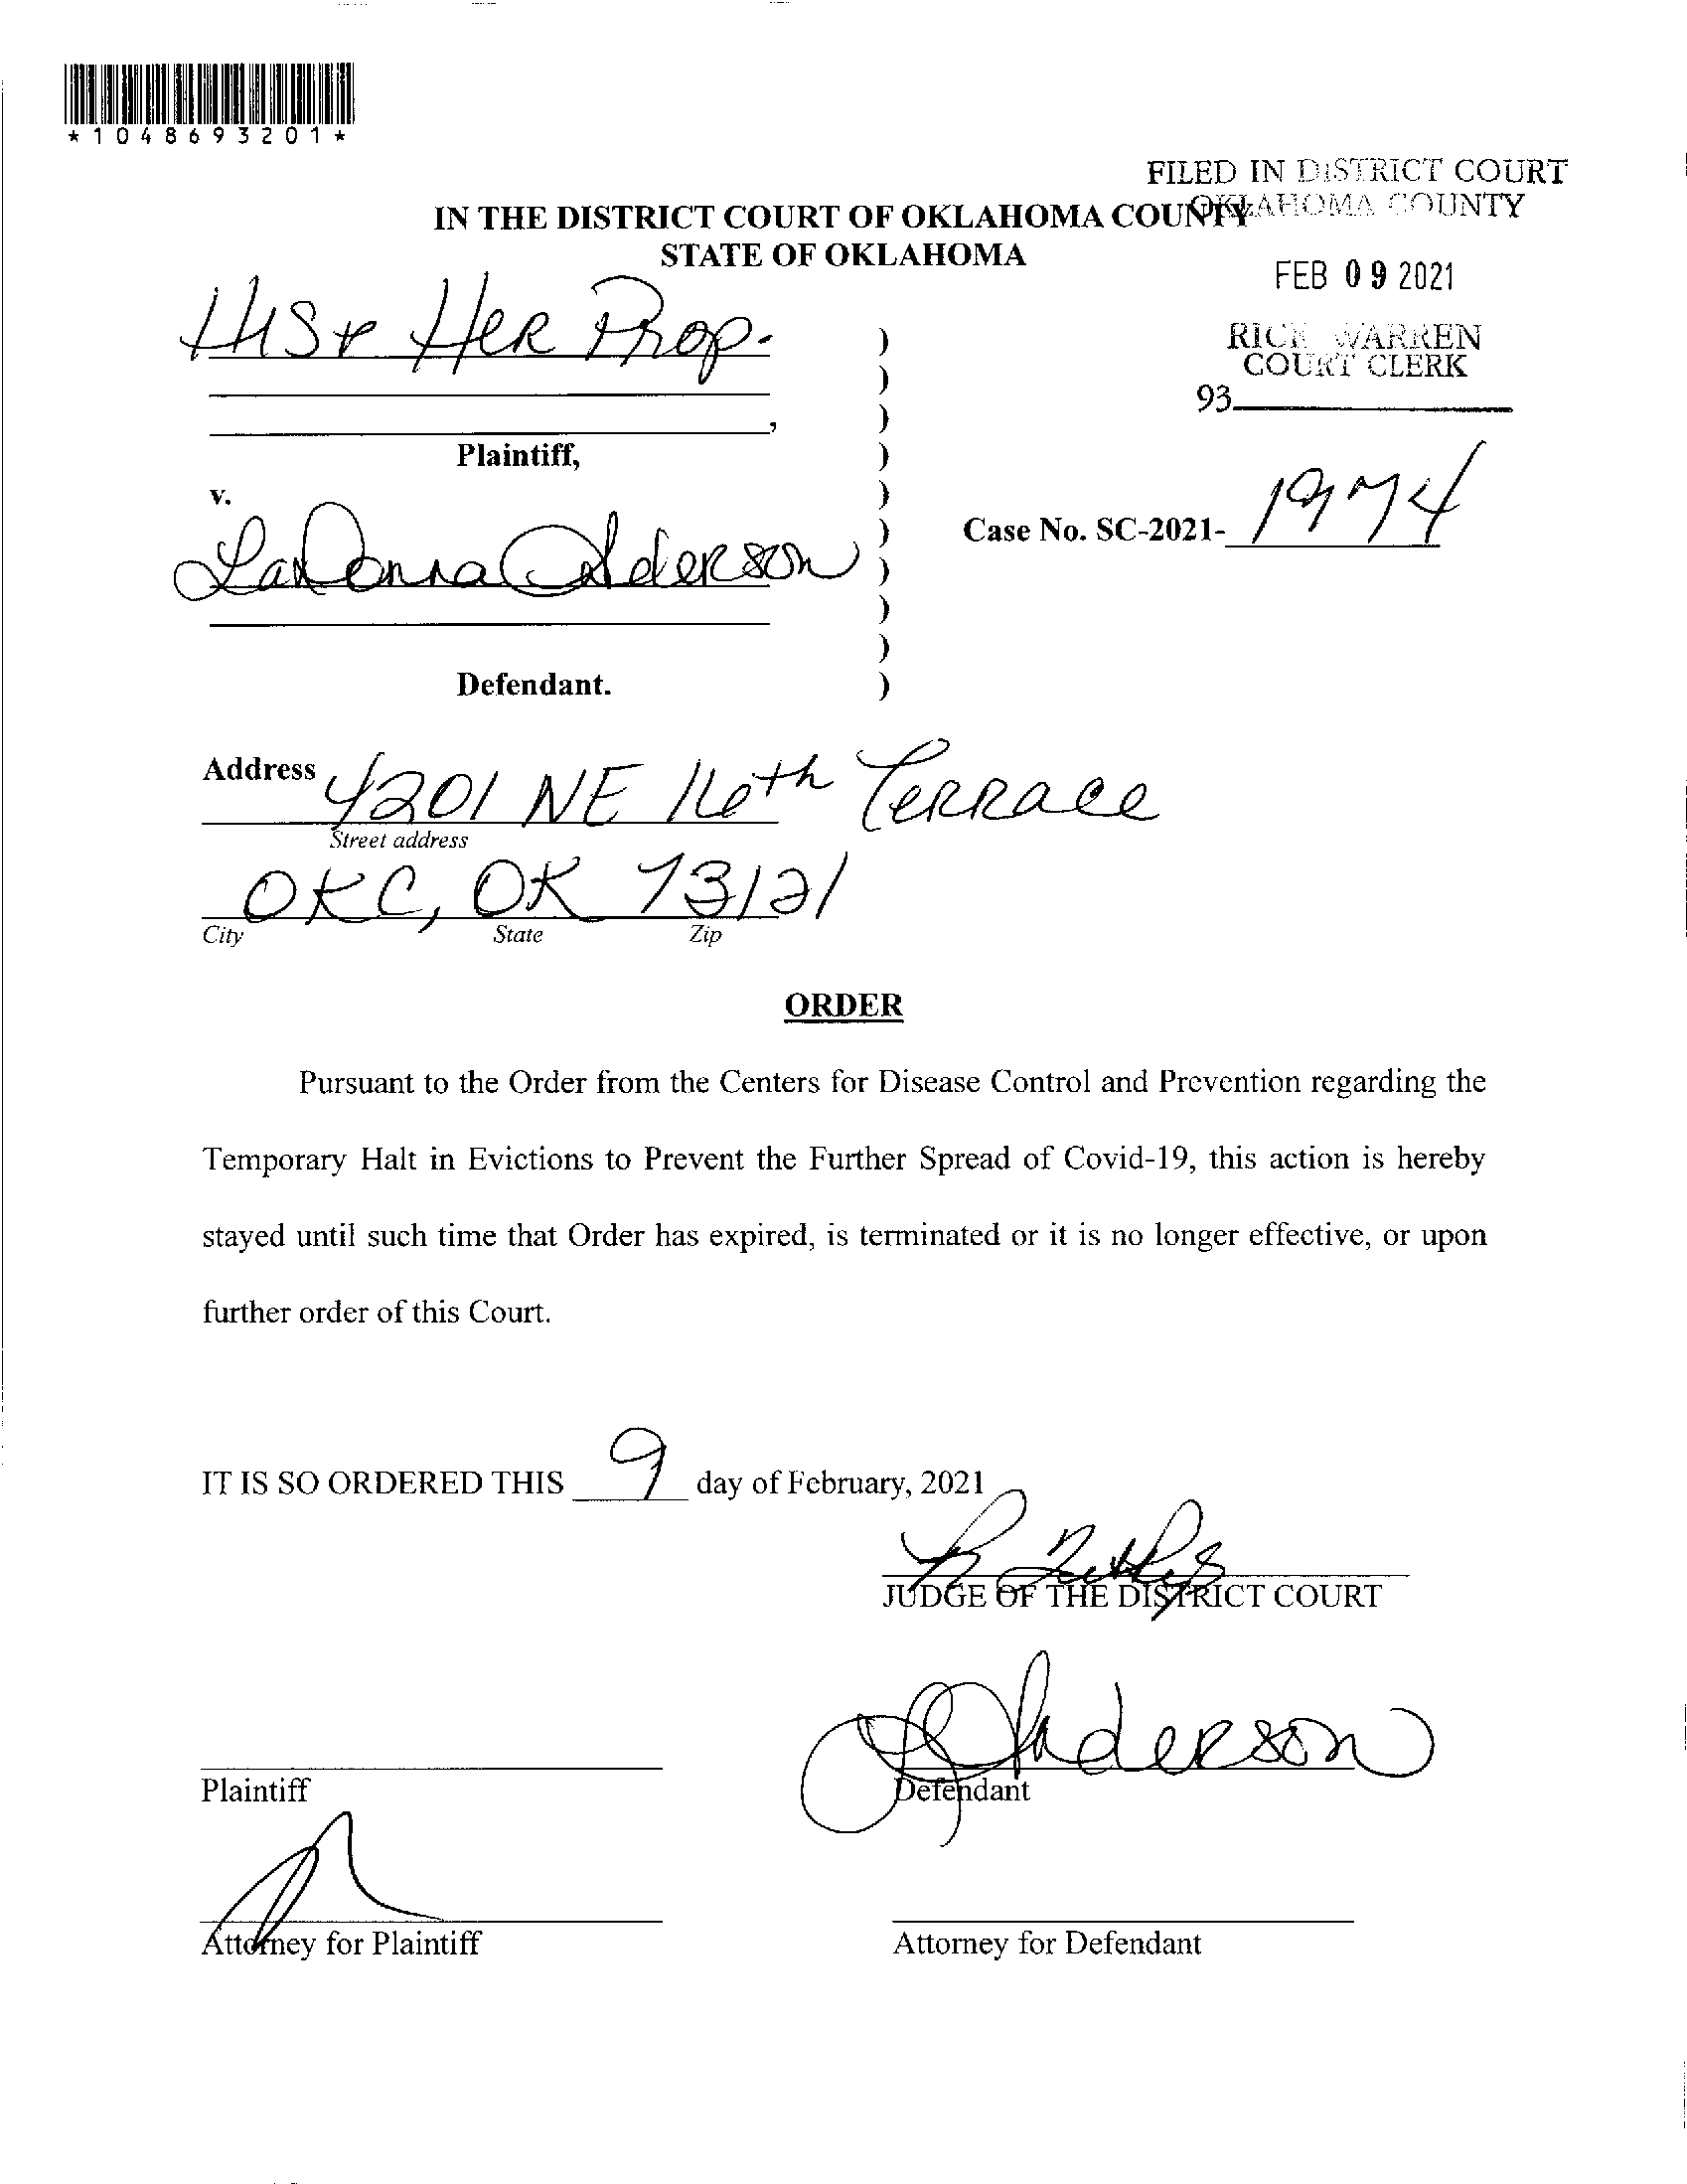 *1048693201*
FILED IN DISTRICT COURT
OKLAHOMA COUNTY
IN THE DISTRICT COURT OF OKLAHOMA COUNTY
STATE OF OKLAHOMA
FEB 09 2021
RICK WARREN
COURT CLERK
93
His & Her Prop.
,
Plaintiff,
v.
LaDonna Anderson
Case No. SC-2021- 1974
Defendant.
Address 4201 NE 16th Terrace
Street address
OKC, OK 73121
City State Zip
ORDER
Pursuant to the Order from the Centers for Disease Control and Prevention regarding the
Temporary Halt in Evictions to Prevent the Further Spread of Covid-19, this action is hereby
stayed until such time that Order has expired, is terminated or it is no longer effective, or upon
further order of this Court.
IT IS SO ORDERED THIS 9 day of February, 2021
JUDGE OF THE DISTRICT COURT
Anderson
Plaintiff Defendant
Attorney for Plaintiff Attorney for Defendant